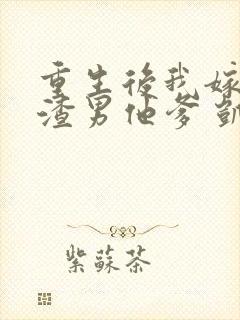 重生後我嫁
渣男他爹凱
紫蘇茶